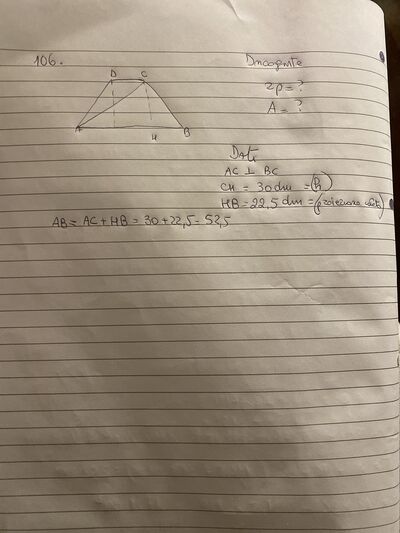 106.
Incognite
D C
2p = ?
A = ?
A H B
Dati
AC ⊥ BC
CH = 30 dm = (h)
HB = 22,5 dm = (proiezione
AB = AC + HB = 30 + 22,5 = 52,5